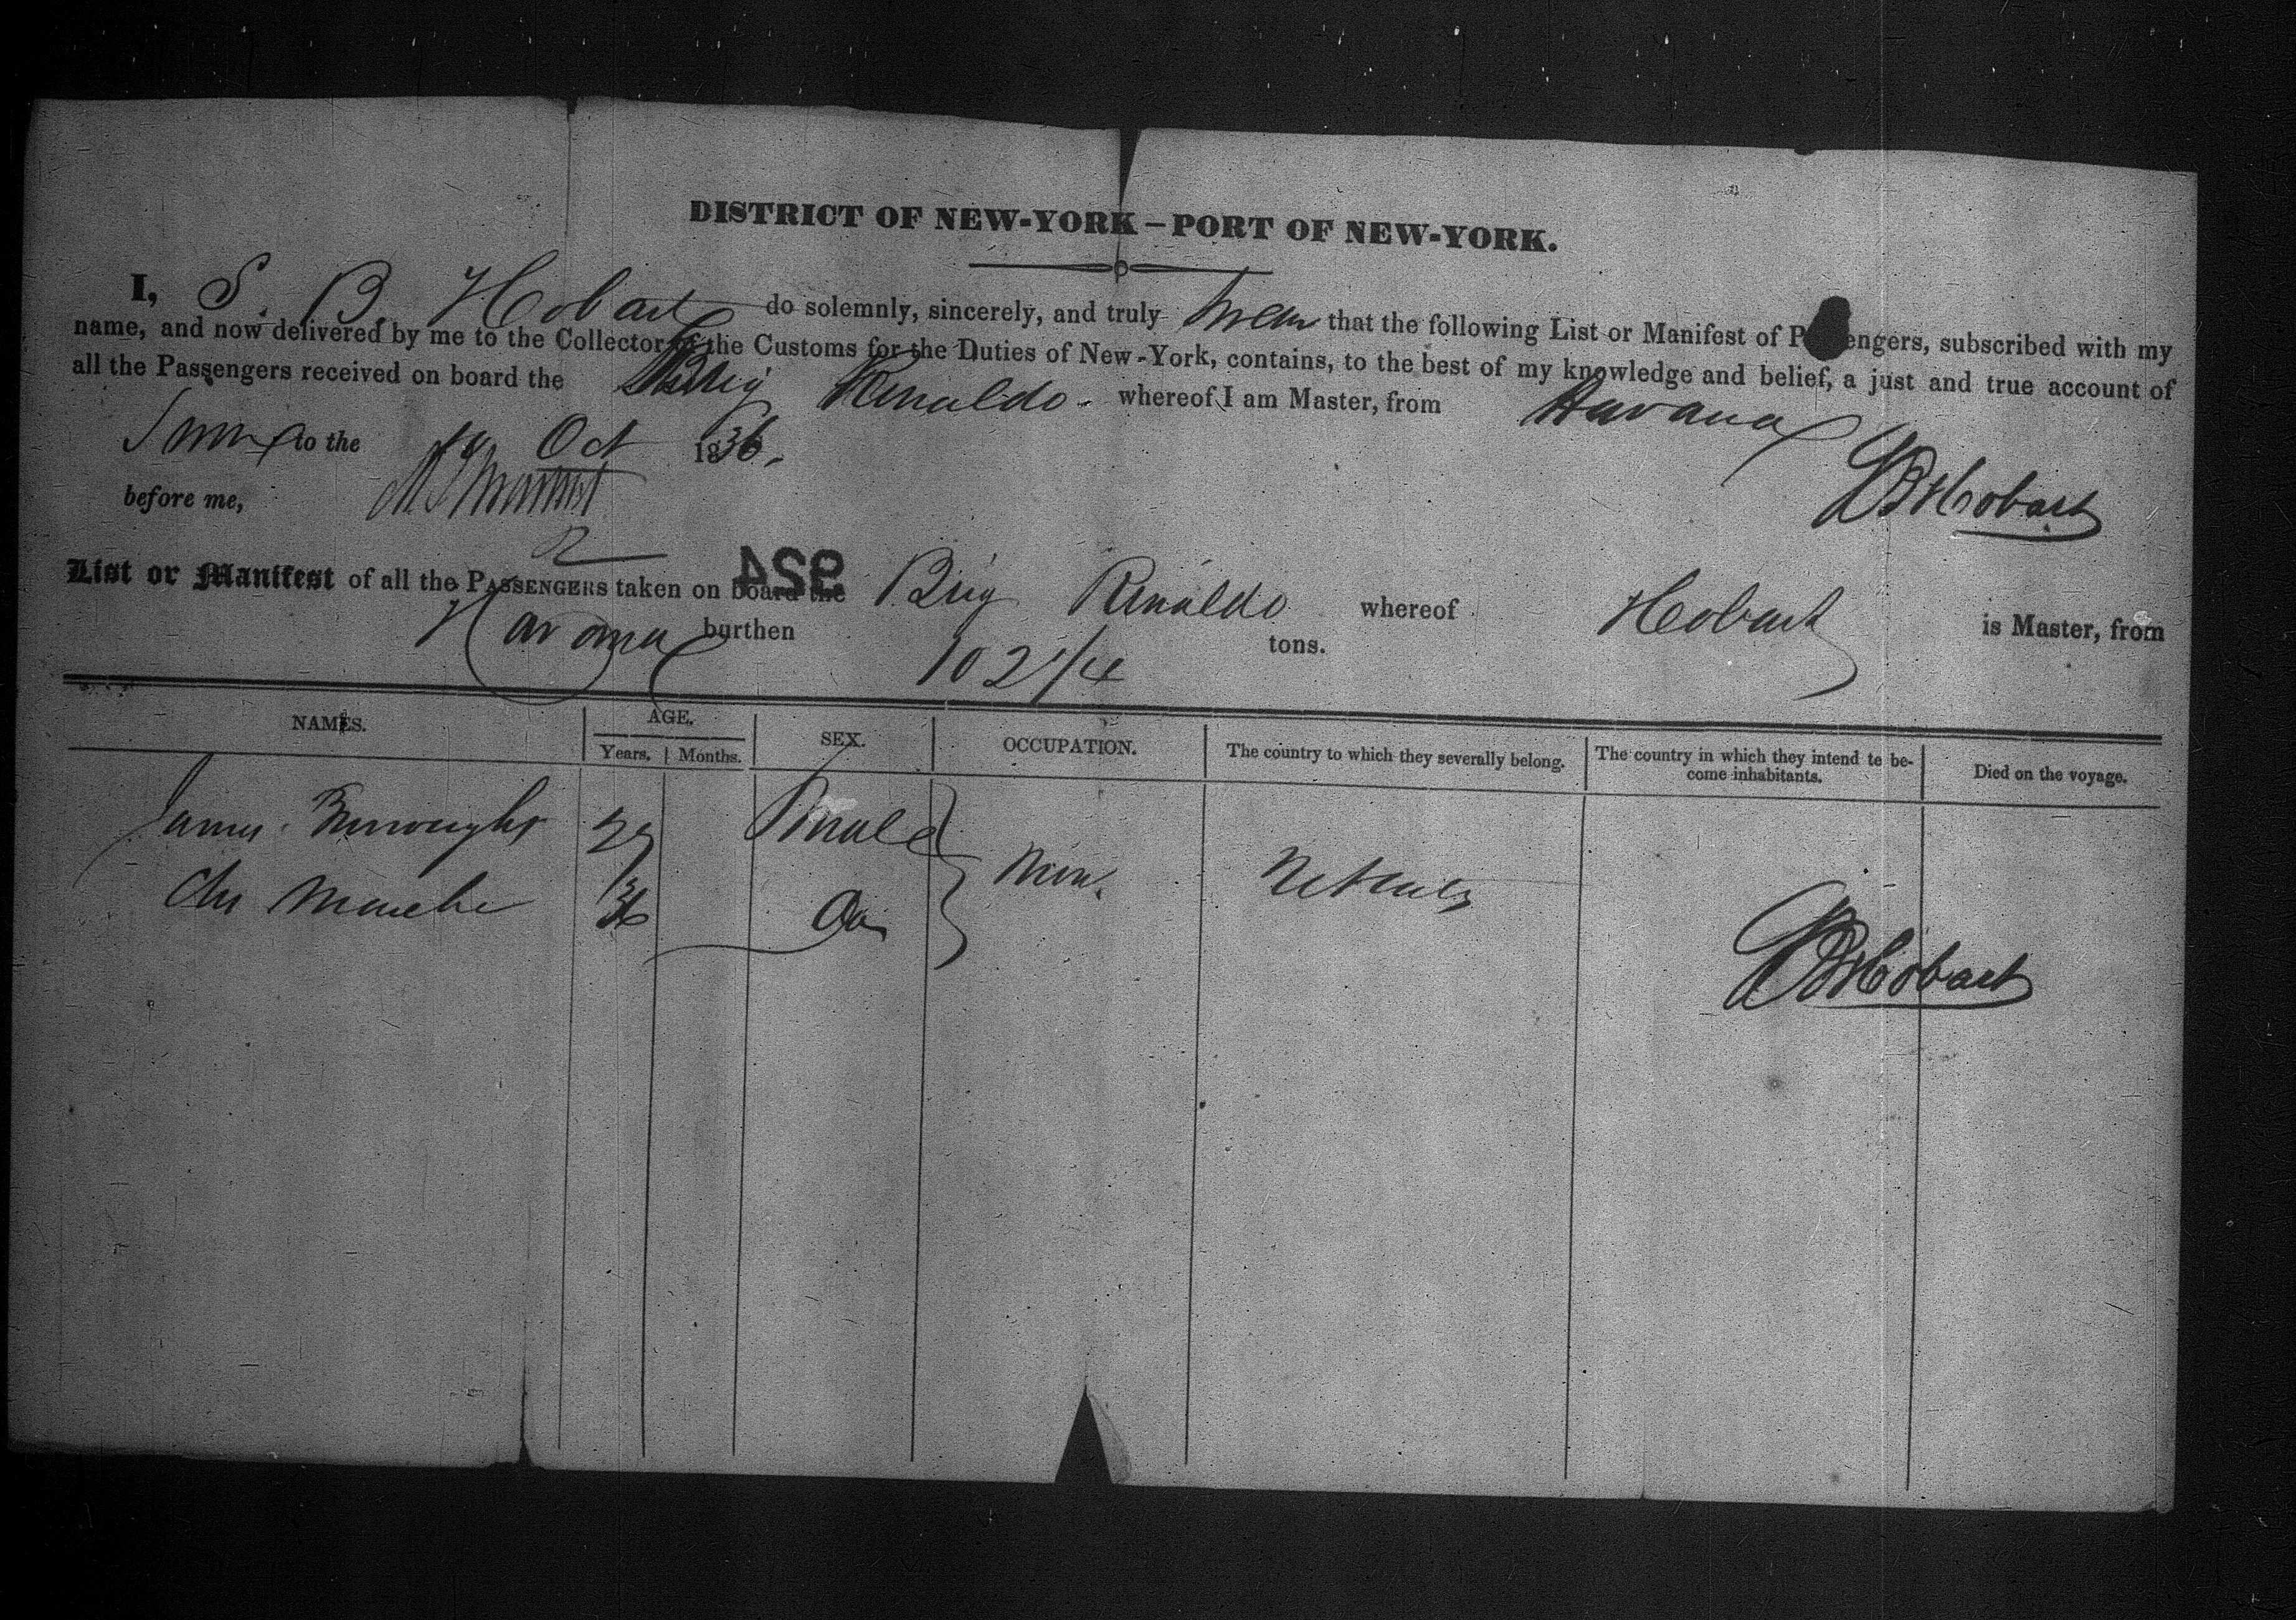 DISTRICT OF NEW-YORK – PORT OF NEW-YORK.
I, S. B. Hobart do solemnly, sincerely, and truly swear that the following List or Manifest of Passengers, subscribed with my
name, and now delivered by me to the Collector of the Customs for the Duties of New-York, contains, to the best of my knowledge and belief, a just and true account of
all the Passengers received on board the Brig Rinaldo whereof I am Master, from Havana
to the Oct 1836.
S B Hobart
before me,
2
924
List or Manifest of all the PASSENGERS taken on board the Brig Rinaldo whereof Hobart is Master, from
Havana burthen 102 1/4 tons.
NAMES. AGE. SEX. OCCUPATION. The country to which they severally belong. The country in which they intend to be-come inhabitants. Died on the voyage.
Years. Months.
James Burroughs Male
36 Do
S B Hobart